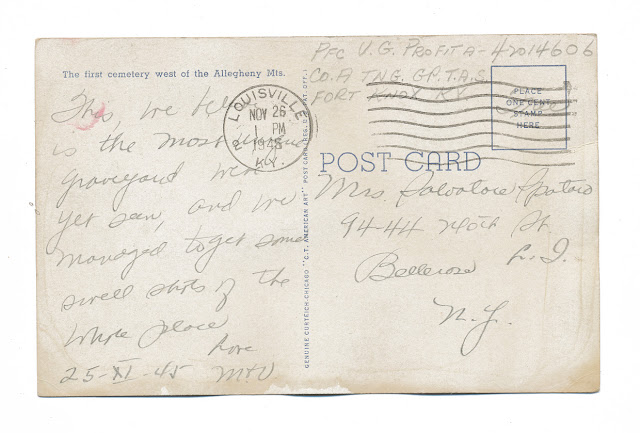 The first cemetery west of the Allegheny Mts.
This, we believe
is the most unique
graveyard we've
yet seen, and we
managed to get some
swell shots of the
whole place
Love
25-XI-45 M+V
LOUISVILLE
NOV 26
1 PM
1945
KY.
GENUINE CURTEICH-CHICAGO "C.T. AMERICAN ART" POST CARD (REG. U.S. PAT. OFF.)
PFC V. G. PROFITA - 42014606
CO. A TNG. GP. T.A.S.
FORT KNOX KY
PLACE
ONE CENT
STAMP
HERE
POST CARD
Mrs. Salvatore Spataro
94-44 240th St.
Bellerose L. I.
N. Y.